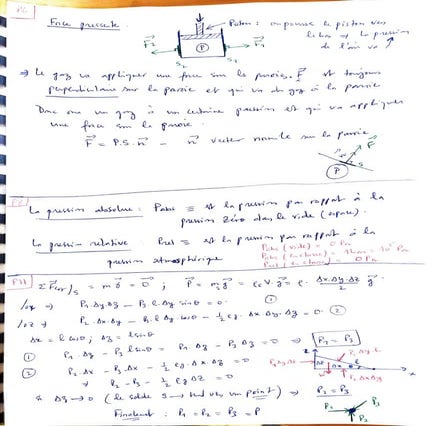 Force pressante.
Piston : on pousse le piston vers
le bas ⇒ la pression
de l'air va ↗
F₂ F₁
S₂ S₁
P
⇒ Le gaz va appliquer une force sur les parois. F est toujours
perpendiculaire sur la paroie et qui va du gaz à la paroie
Donc un gaz à un certaine pression est qui va appliquer
une force sur la paroie.
F = P.S.n - n vecteur normale sur la paroie
P S F
La pression absolue : Pabs ≡ est la pression par rapport à la
pression zéro dans le vide (espace).
La pression relative : Prel ≡ est la pression par rapport à la
pression atmosphérique
Pabs (vide) = 0 Pa
P11 ΣFext/S = m = 0 ; P = m g =
P₁ Δy Δz - P₃ l Δy sinθ = 0. ①
/oz → P₂.Δx.Δy - P₃ l Δy cosθ - ½ρg.Δx.Δy.Δz = 0. ②
Δx = l cosθ ; Δz = l sinθ
① P₁.Δz - P₃ l sinθ = P₁.Δz - P₃ Δz = 0 ⇒ P₁ = P₃
② P₂.Δx - P₃.Δx - ½ρg.Δx.Δz = 0
P₂ - P₃ - ½ρgΔz = 0
si Δz → 0 (le solide S → tend vers un point) ⇒ P₂ = P₃
Finalement : P₁ = P₂ = P₃ = P